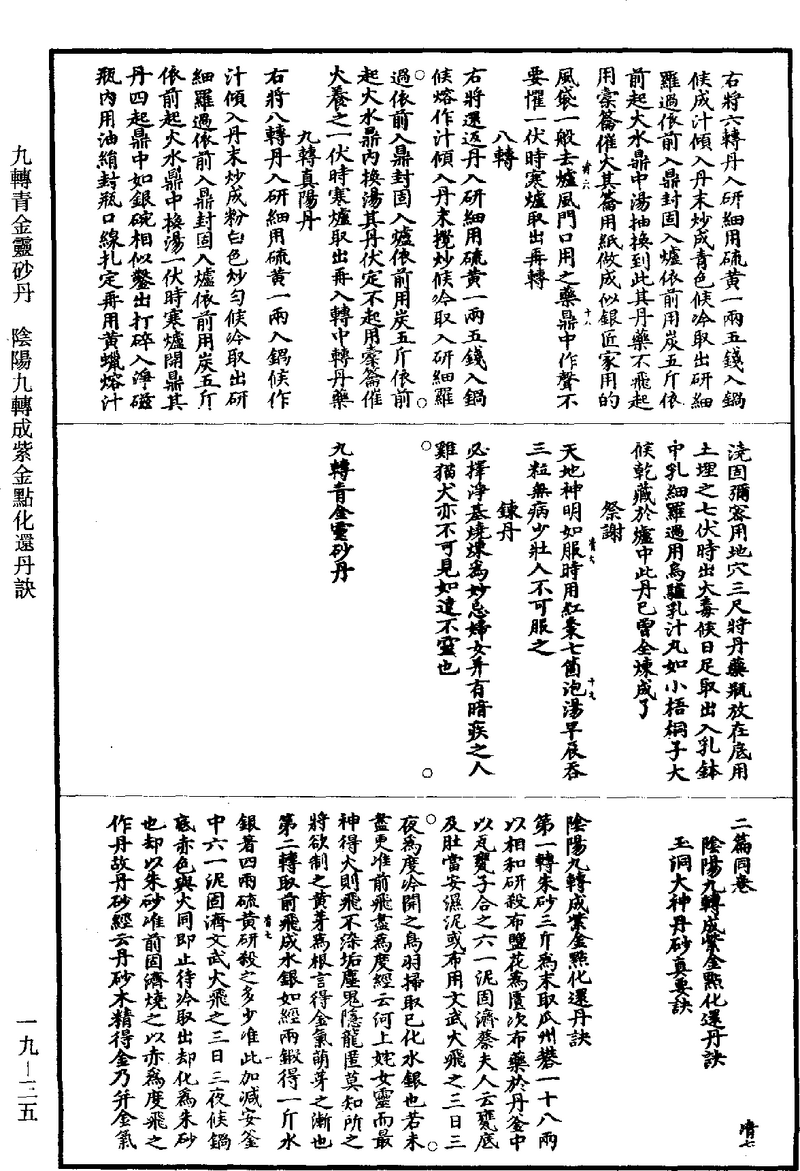 右將六轉丹入研細用硫黃一兩五錢入鍋
候成汁傾入丹末炒成青色候冷取出研細
羅過依前入鼎封固入爐依前用炭五斤依
前起火水鼎中湯抽換到此其丹藥不飛起
用槖籥催火其籥用紙做成似銀匠家用的
風袋一般去爐風門口用之藥鼎中作聲不
要懼一伏時寒爐取出再轉
八轉
右將還返丹入研細用硫黃一兩五錢入鍋
候熔作汁傾入丹末攪炒候冷取入研細羅
過依前入鼎封固入爐依前用炭五斤依前
起火水鼎內換湯其丹伏定不起用槖籥催
火養之一伏時寒爐取出再入轉中轉丹藥
九轉真陽丹
右將八轉丹入研細用硫黃一兩入鍋候作
汁傾入丹末炒成粉白色炒勻候冷取出研
細羅過依前入鼎封固入爐依前用炭五斤
依前起火水鼎中換湯一伏時寒爐開鼎其
丹四起鼎中如銀碗相似鑿出打碎入淨磁
瓶內用油絹封瓶口線扎定再用黃蠟熔汁
澆固彌密用地穴三尺將丹藥瓶放在底用
土埋之七伏時出火毒候日足取出入乳鉢
中乳細羅過用烏驢乳汁丸如小梧桐子大
候乾藏於爐中此丹已曾全煉成了
祭謝
天地神明如服時用紅棗七箇泡湯早辰吞
三粒無病少壯人不可服之
鍊丹
必擇淨基燒煉為妙忌婦女并有暗疾之人
雞猫犬亦不可見如違不靈也
九轉青金靈砂丹
二篇同卷
清七
陰陽九轉成紫金點化還丹訣
玉洞大神丹砂真要訣
陰陽九轉成紫金點化還丹訣
第一轉朱砂三斤為末取瓜州礬一十八兩
以相和研殺布鹽花為匱次布藥於丹釜中
以瓦甕子合之六一泥固濟蔡夫人云甕底
及肚當安濕泥或布用文武火飛之三日三
夜為度冷開之鳥羽掃取已化水銀也若未
盡更准前飛盡為度經云河上姹女靈而最
神得火則飛不染垢塵鬼隱龍匿莫知所之
將欲制之黃芽為根言得金氣萌芽之漸也
第二轉取前飛成水銀如經兩鍛得一斤水
銀著四兩硫黃研殺之多少准此加減安釜
中六一泥固濟文武火飛之三日三夜候鍋
底赤色與火同即止待冷取出却化為朱砂
也却以朱砂准前固濟燒之以赤為度飛之
作丹故丹砂經云丹砂木精得金乃并金氣
九轉青金靈砂丹　陰陽九轉成紫金點化還丹訣
一九—二五